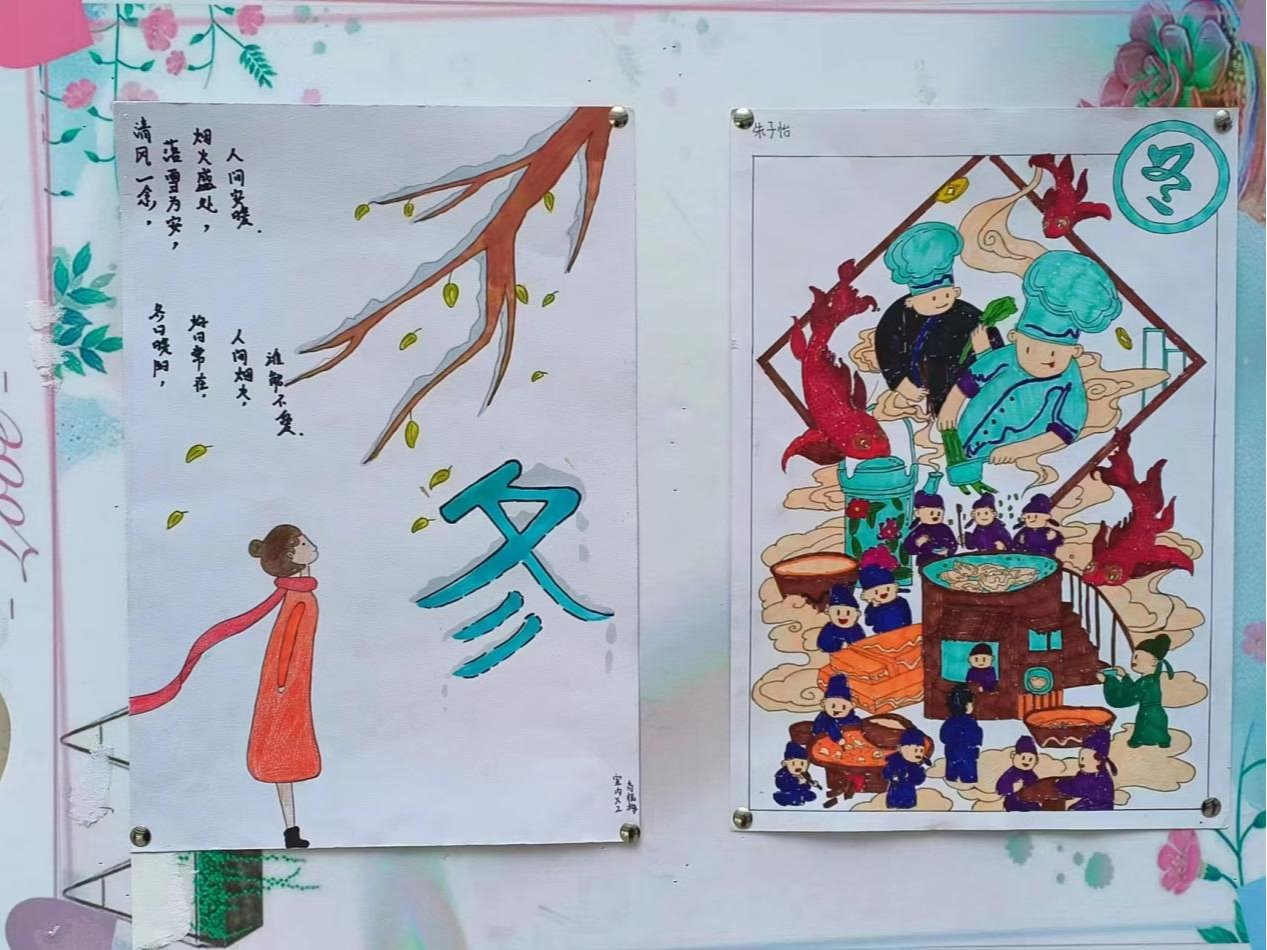 清风一念，
落雪为安，
烟火盛处，
人间安暖.
冬日暖阳，
好日常在.
人间烟火，
谁能不爱.
冬
室内X2
朱子怡
冬
Love